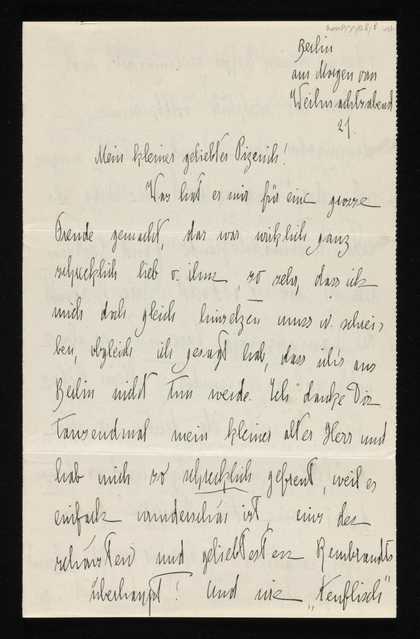 Berlin
am Morgen von
Weihnachtsabend
21
Mein kleiner geliebter Pizenich!
Was hat es mir für eine grosse
Freude gemacht, das war wirklich ganz
schrecklich lieb v. ihm so sehr, dass ich
mich doch gleich hinsetzen muss u. schrei-
ben, obgleich ich gesagt hab, dass ich's aus
Berlin nicht tun werde. Ich danke Dir
tausendmal mein kleiner alter Herr und
hab mich so schrecklich gefreut, weil es
einfach wunderschön ist, eins der
schönsten und geliebtesten Rembrandts
überhaupt! Und wie